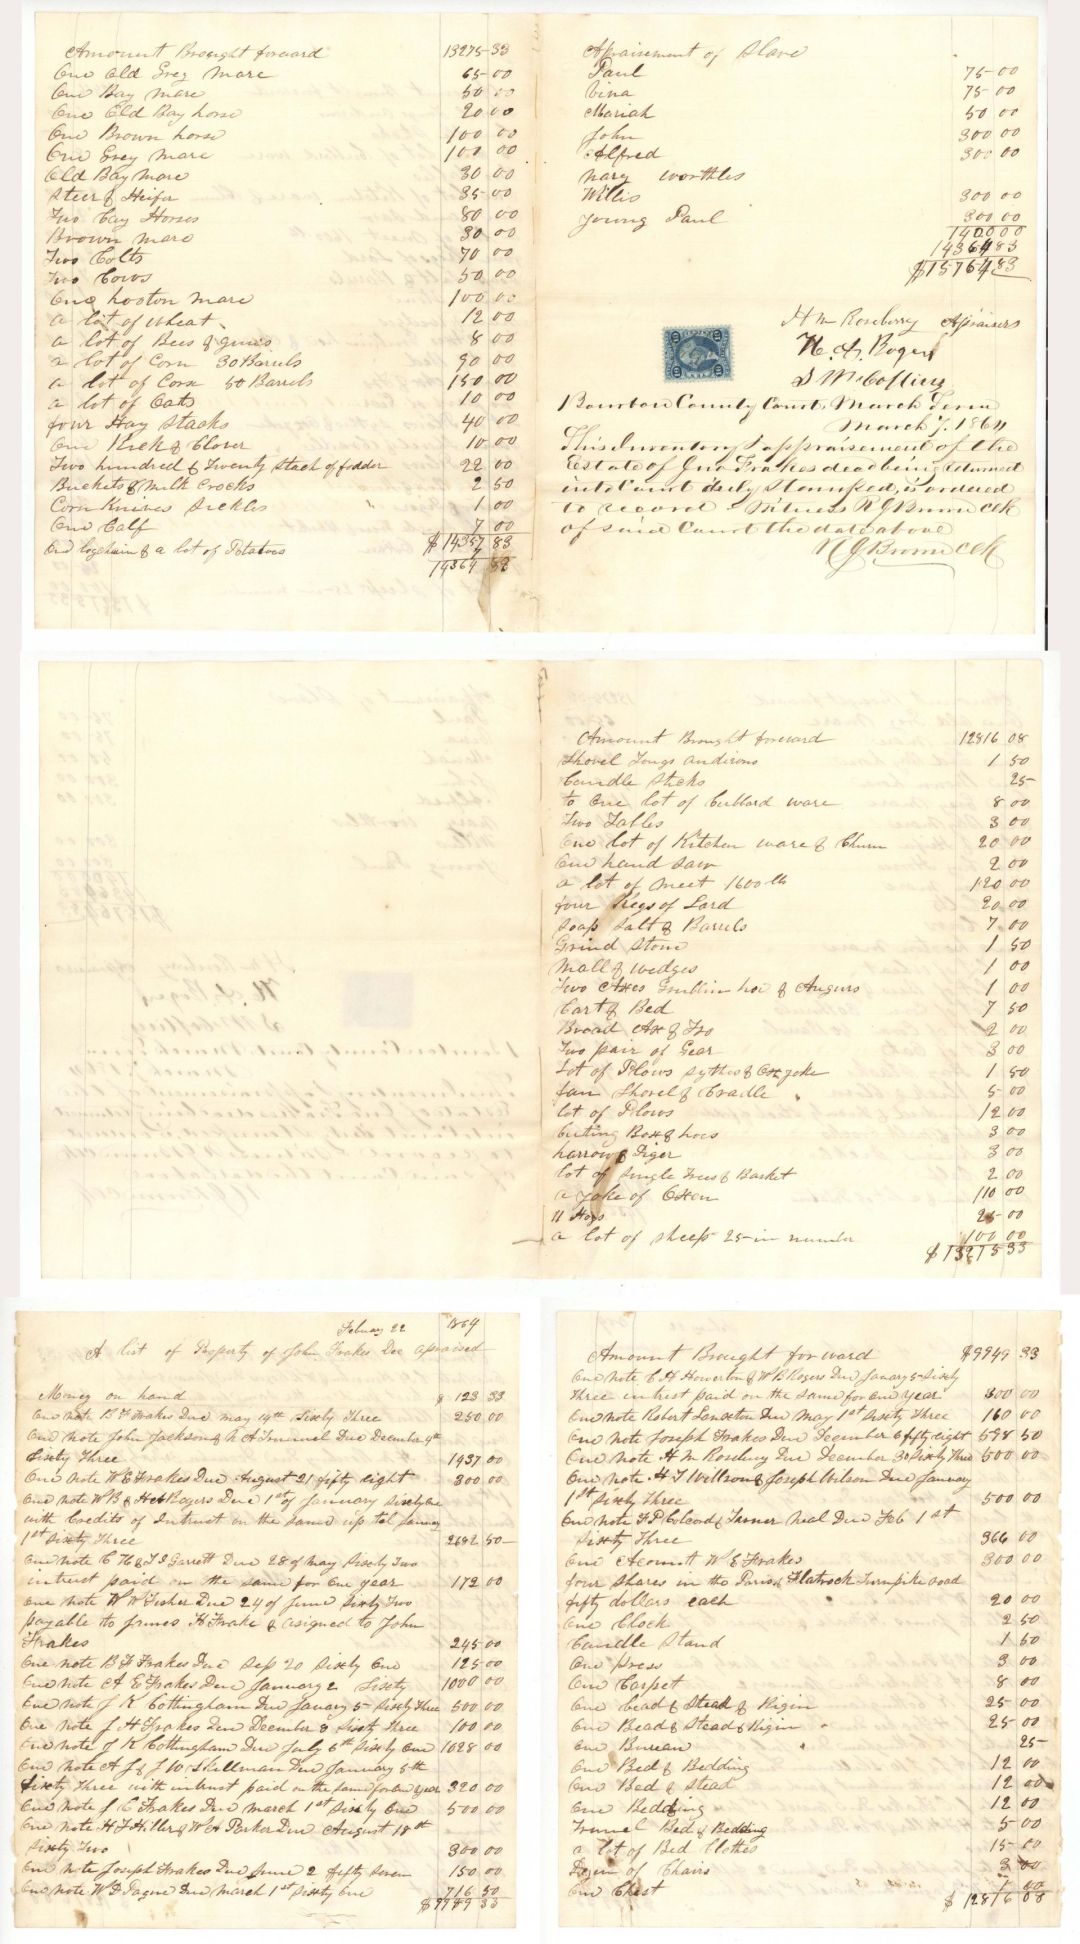 Amount Brought forward 13275 33
One Old Grey Mare 65 00
One Bay Mare 50 00
One Old Bay horse 20 00
One Brown horse 100 00
One Grey Mare 100 00
Old Bay Mare 30 00
Steer & Heifer 35 00
Two Bay Horses 80 00
Brown Mare 30 00
Two Colts 70 00
Two Cows 50 00
One mare 100 00
a lot of wheat 12 00
a lot of Bees & gums 8 00
a lot of Corn 30 Barrels 90 00
a lot of Corn 50 Barrels 150 00
a lot of Oats 10 00
four Hay Stacks 40 00
One Rick of Clover 10 00
Two hundred & Twenty stack of fodder 22 00
Buckets & Milk Crocks 2 50
Corn Knives Sickles 1 00
One Calf 7 00
$14357 83
One logchain & a lot of Potatoes 7
14364 83
Apraisement of Slave
Paul 75 00
Vina 75 00
Mariah 50 00
John 300 00
Alfred 300 00
nary worthles
Willis 300 00
Young Paul 300 00
1400 00
14364 83
$15764 83
H M Roseberry Apraisers
H. A. Rogers
S
Bourbon County Court March Term
March 7. 1864
This Inventory & appraisement of the
Estate of Jno Frakes dead being returned
into Court duly Stamped, is ordered
to record Witness R J Brown clk
of said Court the date above
R J Brown clk
Amount Brought forward 12816 08
Shovel Tongs andirons 1 50
Candle sticks 25
to One lot of Cubbard ware 8 00
Two Tables 3 00
One lot of Kitchen ware & Churn 20 00
One hand saw 2 00
a lot of meet 1600 lb 120 00
four Kegs of Lard 20 00
Soap Salt & Barrels 7 00
Grind Stone 1 50
Mall & wedges 1 00
Two Axes Grubbin hoe & Augurs 1 00
Cart & Bed 7 50
Broad Ax & Fro 2 00
Two pair of Gear 3 00
Lot of Plows Sythes & Ox yoke 1 50
fan Shovel & Cradle 5 00
lot of Plows 12 00
Cuting Box & hoes 3 00
harrow & Diger 3 00
lot of Single Trees & Basket 2 00
a yoke of Oxen 110 00
11 Hogs 25 00
a lot of sheep 25 in number 100 00
$13275 33
Febuary 22 1864
A list of Property of John Frakes Dec apraised
Money on hand $ 123 33
One note B F Frakes Due may 19th Sixty Three 250 00
One note John Jackson & Due December 9th
Sixty Three 1937 00
One note W E Frakes Due August 21 fifty eight 300 00
One note W B & H A Rogers Due 1st of January Sixty One
with Credits of Intrust on the same up tel January
1st Sixty Three 2682 50
One note C H & T S Garrett Due 28 of May Sixty Two
intrust paid on the same for One year 172 00
One note W W Fisher Due 24 of June Sixty Two
payable to James H Frake & asigned to John
Frakes 245 00
One note B F Frakes Due Sep 20 Sixty One 125 00
One note A E Frakes Due January 2 Sixty 1000 00
One note J K Cottingham Due January 5 Sixty Three 500 00
One note J H Frakes Due December 8 Sixty Three 100 00
One note J K Cottingham Due July 6th Sixty One 1028 00
One note A J & J W Skillman Due January 5th
Sixty Three with intrust paid on the same for One year 320 00
One note J C Frakes Due March 1st Sixty One 500 00
One note H F Hiller & W H Parker Due August 18th
Sixty Two 300 00
One note Joseph Frakes Due June 2 fifty Seven 150 00
One note W D Due March 1st Sixty One 716 50
$9949 33
Amount Brought forward $9949 33
One note C H Howerton & W B Rogers Due January 5 Sixty
Three intrest paid on the same for One year 300 00
One note Robert Due May 1st Sixty Three 160 00
One note Joseph Frakes Due December 6 fifty eight 598 50
One note H M Roseberry Due December 30 Sixty Three 500 00
One note H T Willson & Joseph Wilson Due January
1st Sixty Three 500 00
One note F P Colcord & Turner Neal Due Feb 1st
Sixty Three 366 00
One Acount W E Frakes 300 00
four Shares in the Paris & Flatrock Turnpike road
fifty dollars each 20 00
One Clock 2 50
Candle Stand 1 50
One press 3 00
One Carpet 8 00
One bead & Stead & Rigin 25 00
One Bead & Stead & Rigin 25 00
One Bureau 25
One Bed & Bedding 12 00
One Bed & Stead 12 00
One Bedding 12 00
Trunel Bed & Bedding 5 00
a lot of Bed Clothes 15 00
Dozen of Chairs 3 00
One Chest 1 00
$12816 08